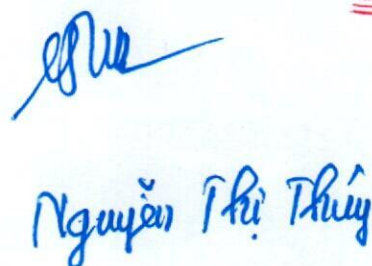 Nguyễn Thị Thúy